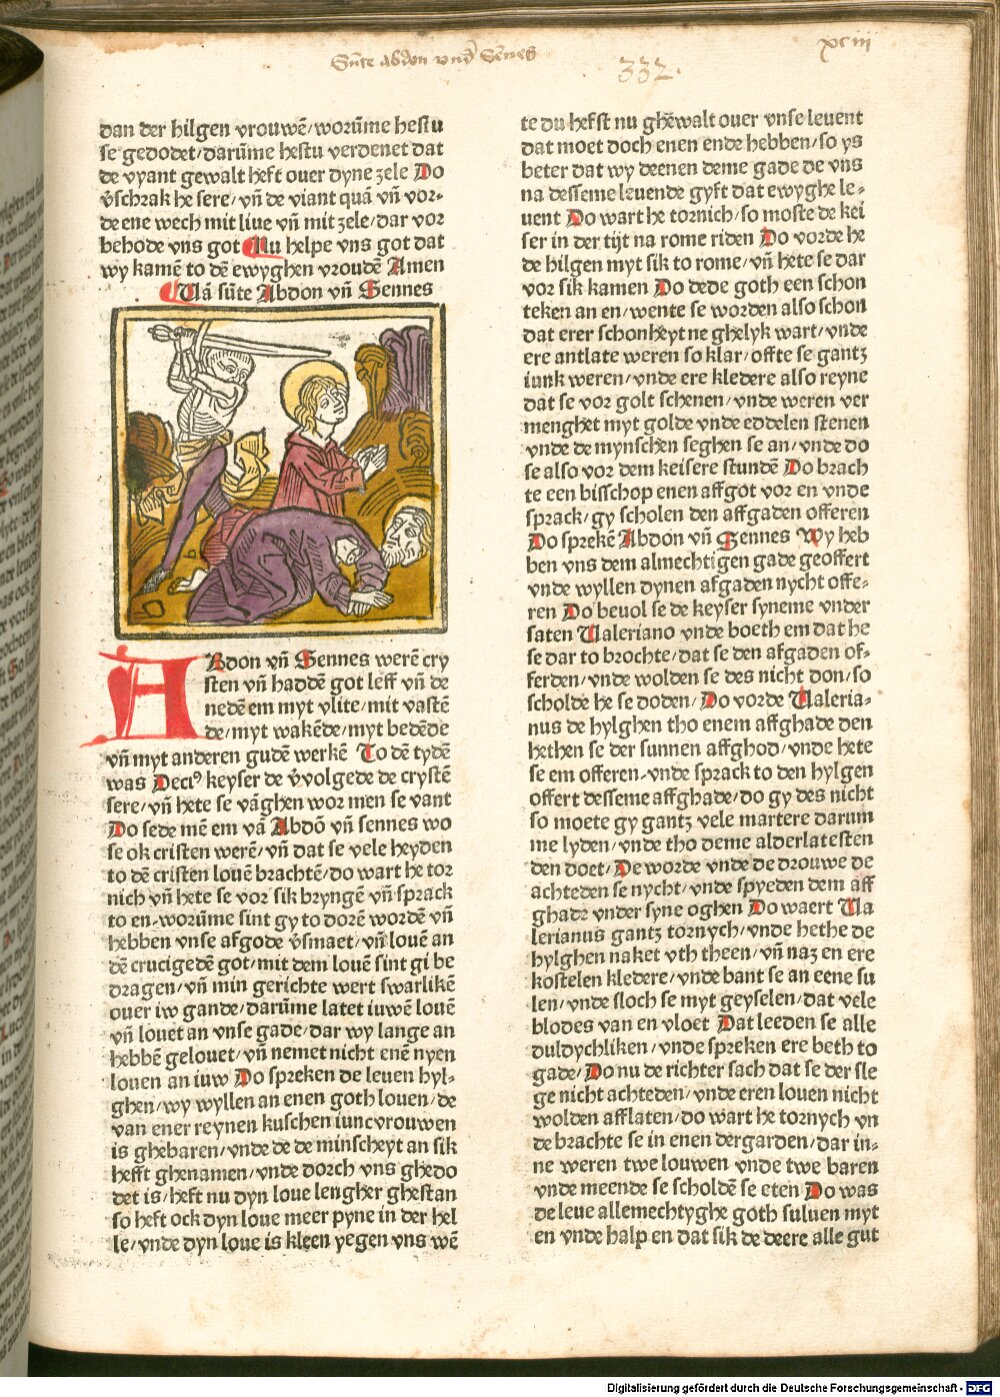 Sūte abdon vnd Sēnes
xciii
332.
dan der hilgen vrouwē/worūme hestu
se gedodet/darūme hestu verdenet dat
de vyant gewalt heft ouer dyne zele Do
v̄schrak he sere/vn̄ de viant quā vn̄ vor-
de ene wech mit liue vn̄ mit zele/dar vor
behode vns got Nu helpe vns got dat
wy kamē to dē ewyghen vroudē Amen
Uā sūte Abdon vn̄ Sennes
ABdon vn̄ Sennes werē cry
sten vn̄ haddē got leff vn̄ de
nedē em myt vlite/mit vastē
de/myt wakēde/myt bedēde
vn̄ myt anderen gudē werkē To dē tydē
was Deciꝰ keyser de v̄volgede de crystē
sere/vn̄ hete se vāghen wor men se vant
Do sede mē em vā Abdō vn̄ sennes wo
se ok cristen werē/vn̄ dat se vele heyden
to dē cristen louē brachtē/do wart he tor
nich vn̄ hete se vor sik bryngē vn̄ sprack
to en-worūme sint gy to dorē wordē vn̄
hebben vnse afgode v̄smaet/vn̄ louē an
dē crucigedē got/mit dem louē sint gi be
dragen/vn̄ min gerichte wert swarlikē
ouer iw gande/darūme latet iuwē louē
vn̄ louet an vnse gade/dar wy lange an
hebbē gelouet/vn̄ nemet nicht enē nyen
louen an iuw Do spreken de leuen hyl-
ghen/wy wyllen an enen goth louen/de
van ener reynen kuschen iuncvrouwen
is ghebaren/vnde de de minscheyt an sik
hefft ghenamen/vnde dorch vns ghedo
det is/heft nu dyn loue lengher ghestan
so heft ock dyn loue meer pyne in der hel
le/vnde dyn loue is kleen yegen vns wē
te du hefst nu ghēwalt ouer vnse leuent
dat moet doch enen ende hebben/so ys
beter dat wy deenen deme gade de vns
na desseme leuende gyft dat ewyghe le-
uent Do wart he tornich/so moste de kei
ser in der tijt na rome riden Do vorde he
de hilgen myt sik to rome/vn̄ hete se dar
vor sik kamen Do dede goth een schon
teken an en/wente se worden also schon
dat erer schonheyt ne ghelyk wart/vnde
ere antlate weren so klar/offte se gantz
iunk weren/vnde ere kledere also reyne
dat se vor golt schenen/vnde weren ver
menghet myt golde vnde eddelen stenen
vnde de mynschen seghen se an/vnde do
se also vor dem keisere stundē Do brach
te een bisschop enen affgot vor en vnde
sprack/gy scholen den affgaden offeren
Do sprekē Abdon vn̄ Sennes Wy heb
ben vns dem almechtigen gade geoffert
vnde wyllen dynen afgaden nycht offe-
ren Do beuol se de keyser syneme vnder
saten Ualeriano vnde boeth em dat he
se dar to brochte/dat se den afgaden of-
ferden/vnde wolden se des nicht don/so
scholde he se doden/Do vorde Ualeria-
nus de hylghen tho enem affghade den
hethen se der sunnen affghod/vnde hete
se em offeren-vnde sprack to den hylgen
offert desseme affghade/do gy des nicht
so moete gy gantz vele martere darum
me lyden/vnde tho deme alderlatesten
den doet/De worde vnde de drouwe de
achteden se nycht/vnde spyeden dem aff
ghade vnder syne oghen Do waert Ua
lerianus gantz tornych/vnde hethe de
hylghen naket vth theen/vn̄ naz en ere
kostelen kledere/vnde bant se an eene su
len/vnde sloch se myt geyselen/dat vele
blodes van en vloet Dat leeden se alle
duldychliken/vnde spreken ere beth to
gade/Do nu de richter sach dat se der sle
ge nicht achteden/vnde eren louen nicht
wolden afflaten/do wart he tornych vn
de brachte se in enen dergarden/dar in-
ne weren twe louwen vnde twe baren
vnde meende se scholdē se eten Do was
de leue allemechtyghe goth suluen myt
en vnde halp en dat sik de deere alle gut
Digitalisierung gefördert durch die Deutsche Forschungsgemeinschaft - DFG